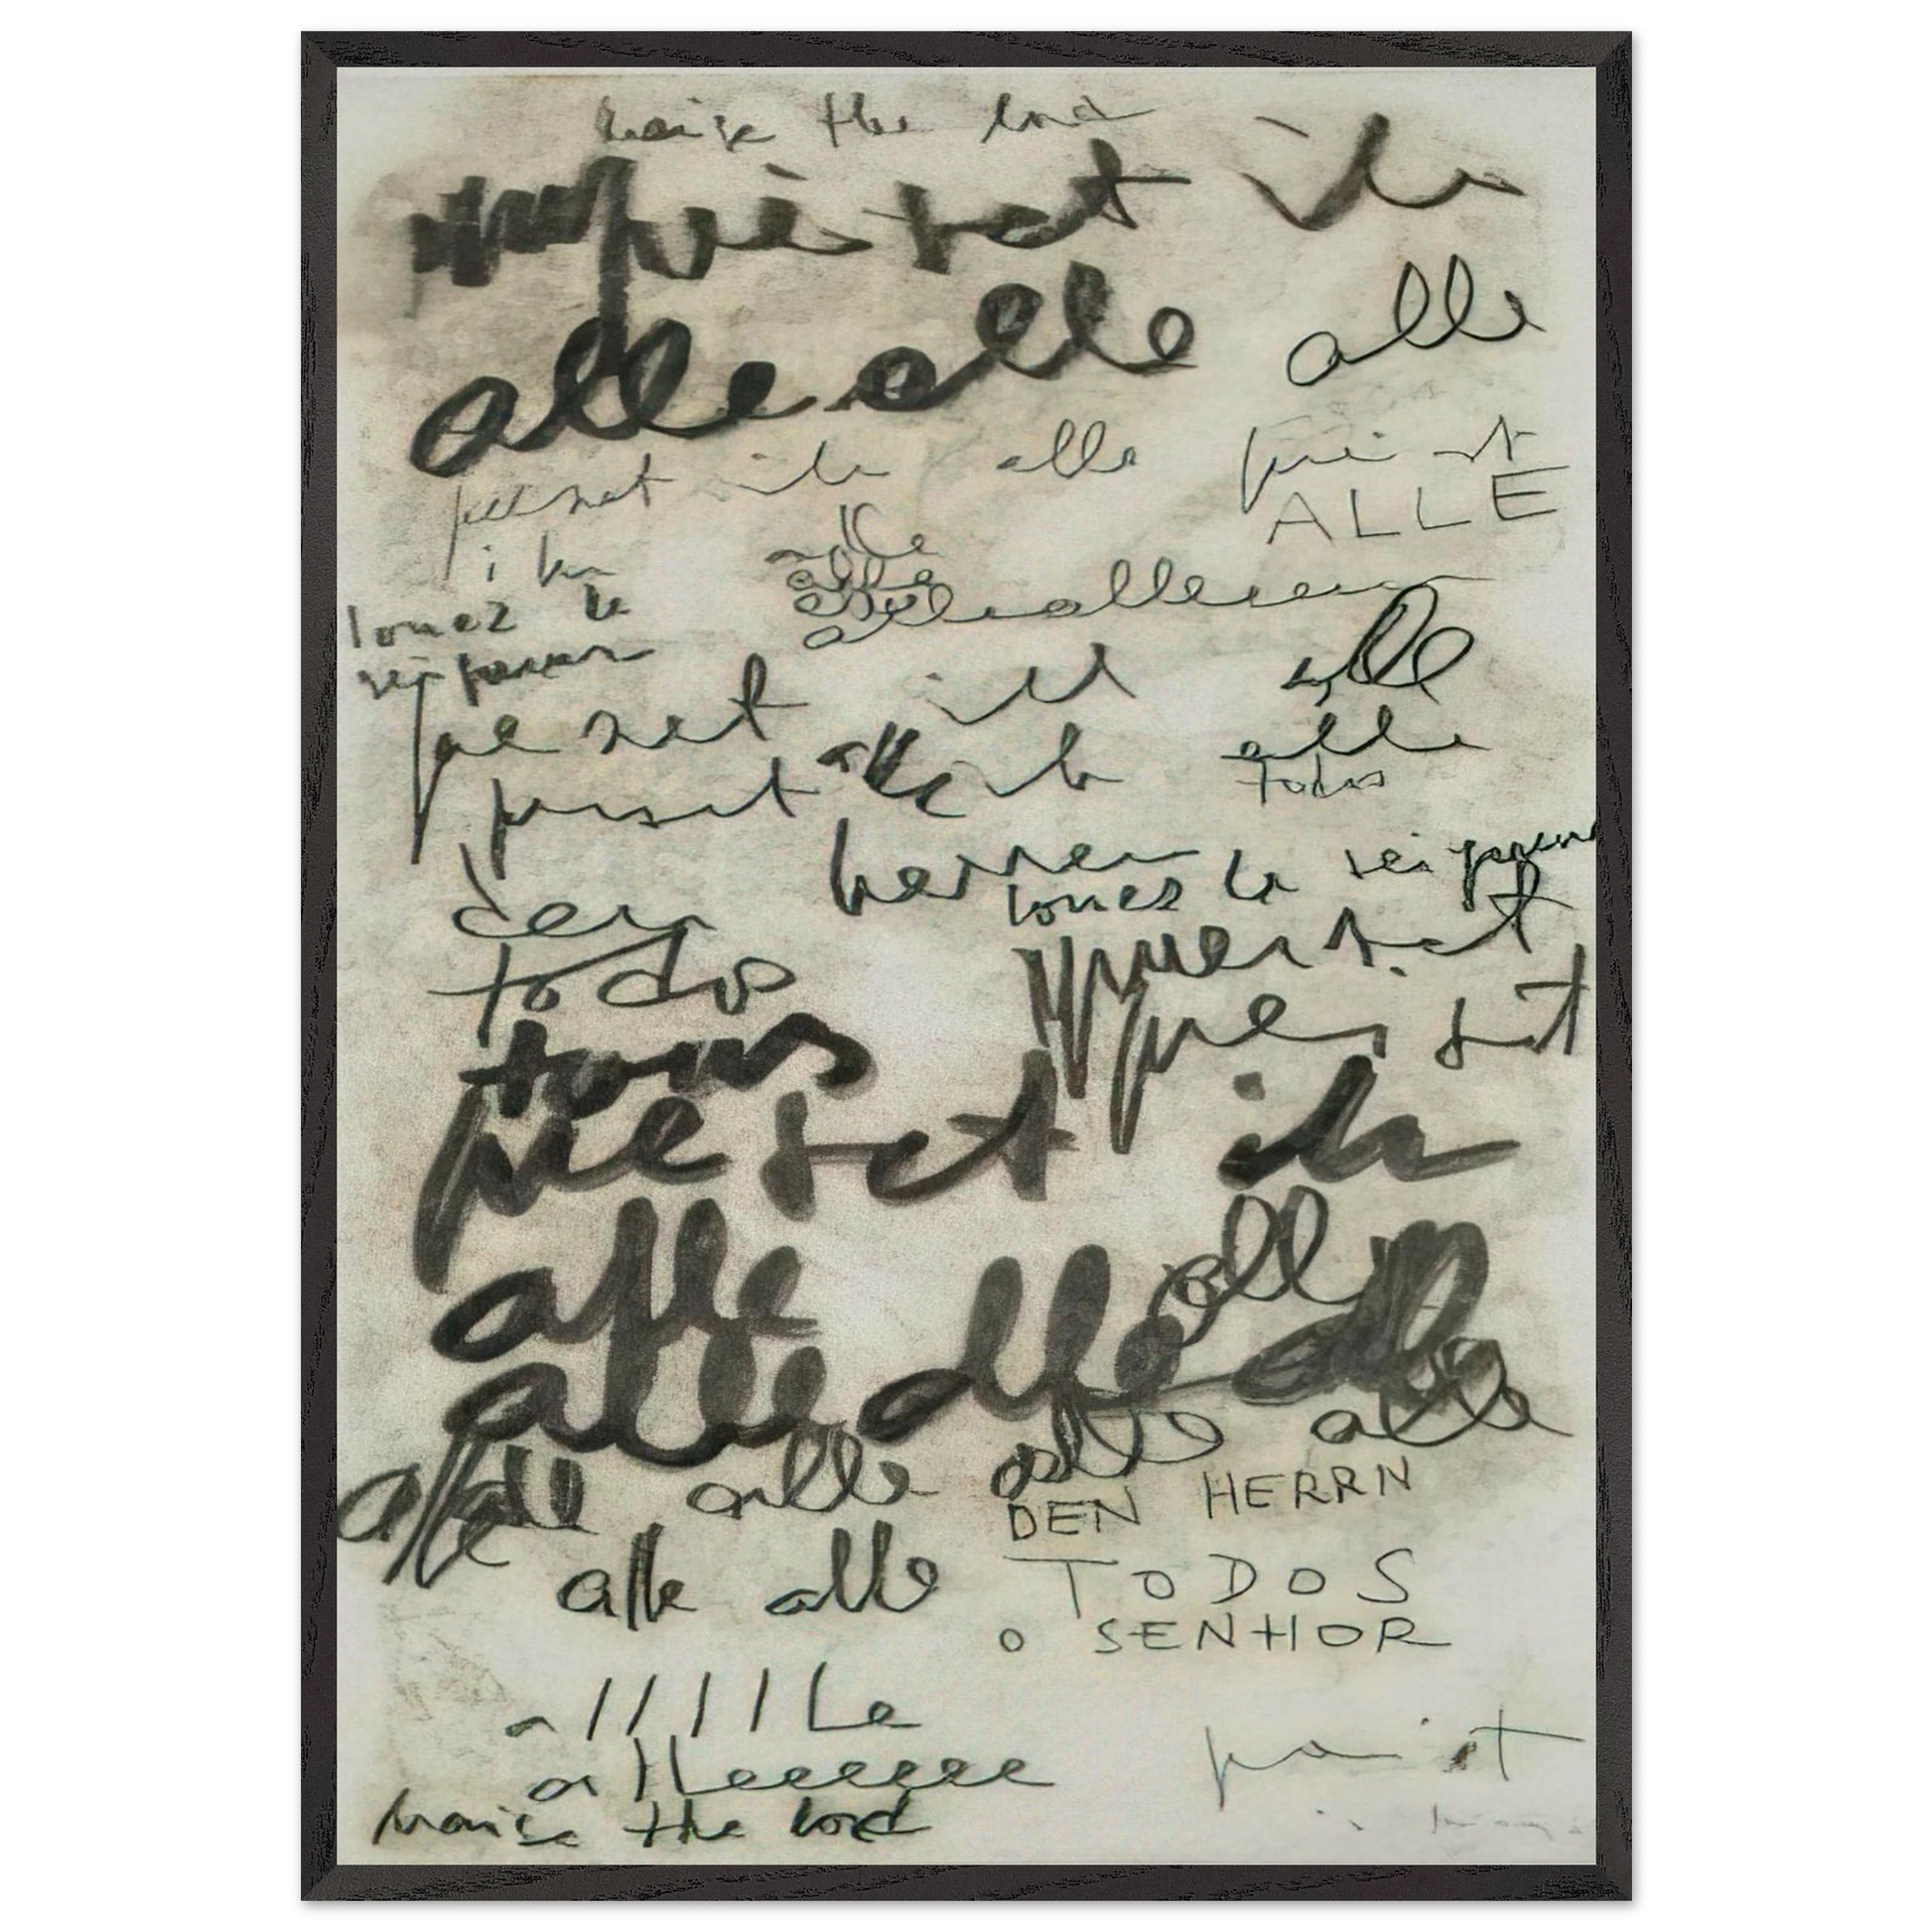 praise the lord
preiset ihn
alle alle alle
preiset ihn alle preiset
ALLE
ihn alle
alle
louez le
seigneur
alle
preiset ihn alle
preiset alle ihn
todos
herren louez le seigneur
den
preiset
todos
preiset
tous
preiset ihn
alle alle
alle alle alle
alle alle alle alle
DEN HERRN
alle alle
TODOS
O SENHOR
alllllle
alleeeeeee
preiset
praise the lord